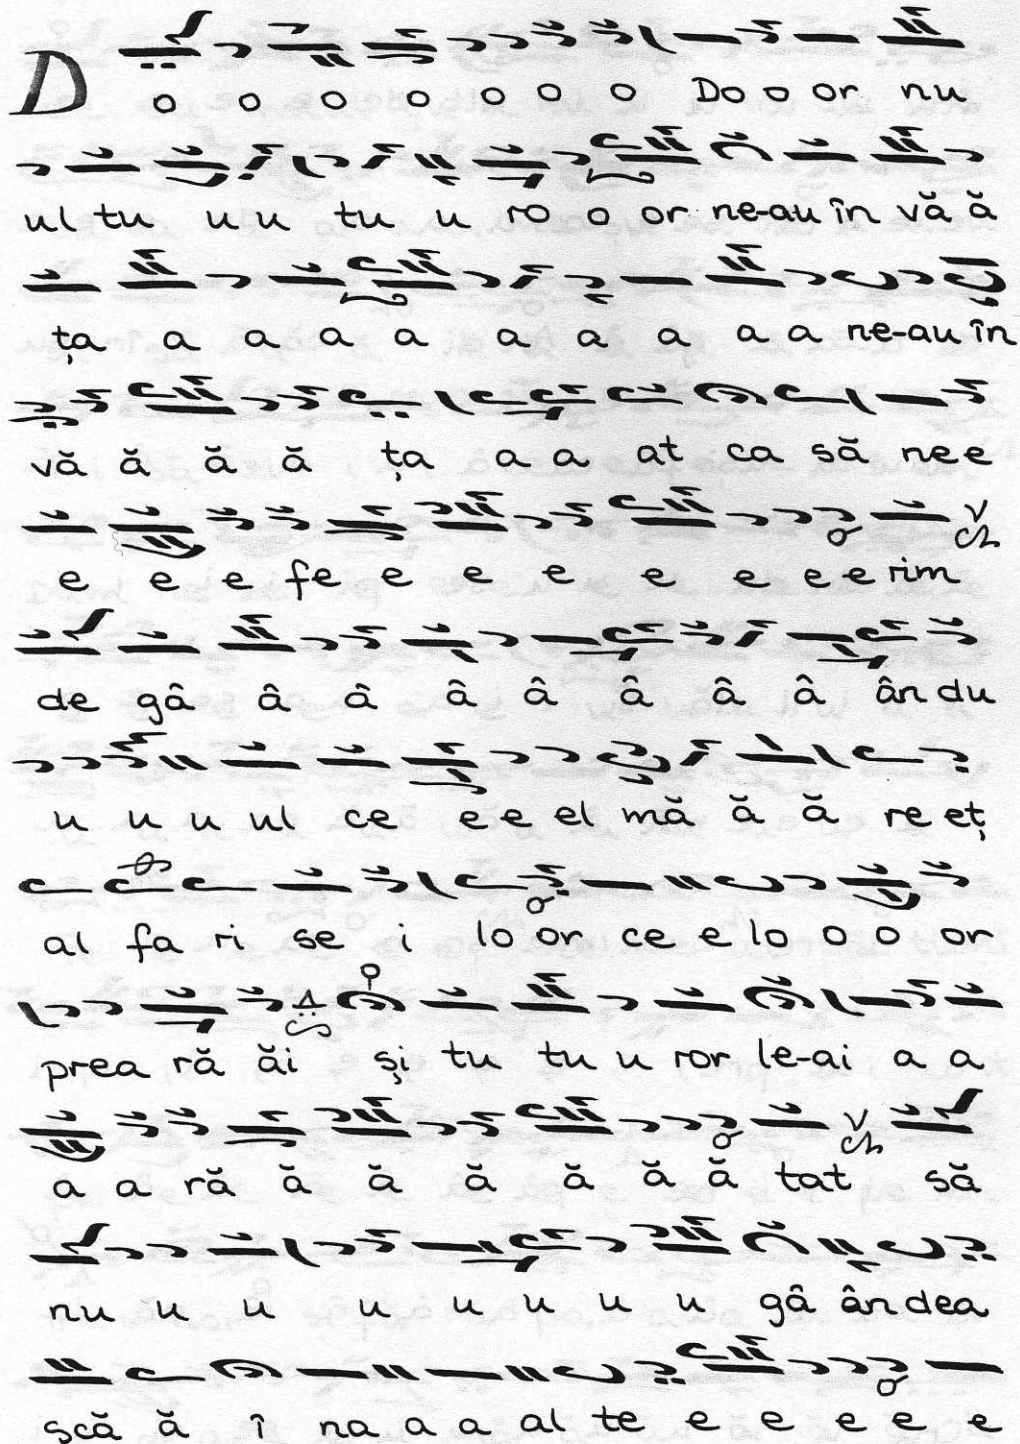 D o o o o o o o Do o or nu
ul tu u u tu u ro o or ne-au în vă ă
ța a a a a a a a a a ne-au în
vă ă ă ă ța a a at ca să ne e
e e e fe e e e e e e e rim
de gâ â â â â â â â ân du
u u u ul ce e e el mă ă ă re eț
al fa ri se i lo or ce e lo o o or
prea ră ăi și tu tu u ror le-ai a a
a a ră ă ă ă ă ă ă tat să
nu u u u u u u u gâ ân dea
scă ă î na a a al te e e e e e